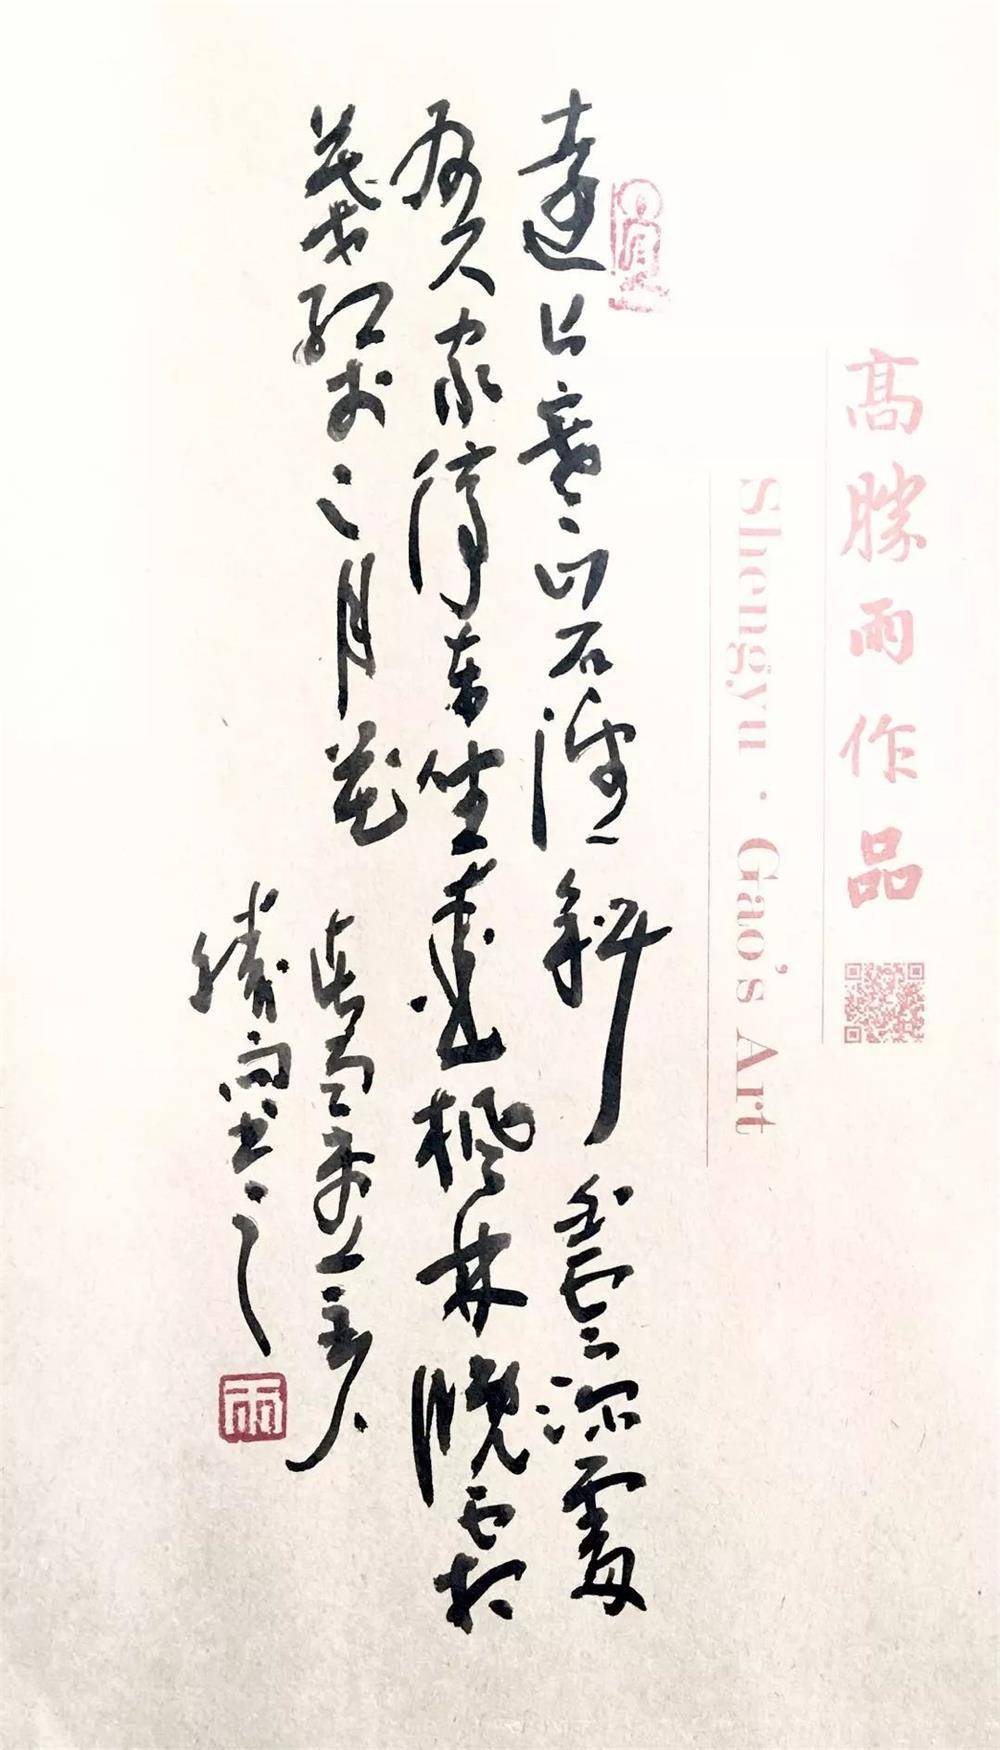 高勝雨作品
Shengyu · Gao's Art
遠上寒山石徑斜白雲深處
有人家停車坐愛楓林晚霜
葉紅於二月花
勝雨書之
雨